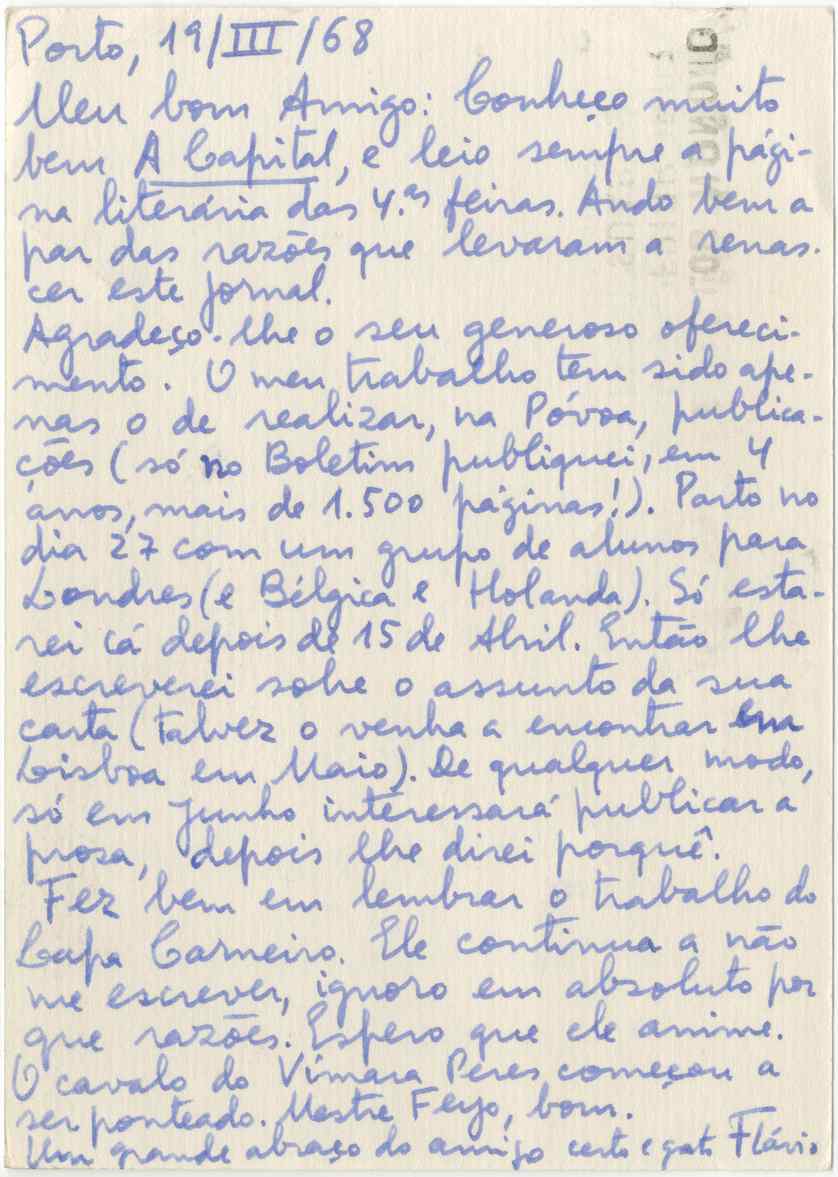 Porto, 19/III/68
Meu bom Amigo: Conheço muito
bem A Capital, e leio sempre a pági-
na literária das 4.as feiras. Ando bem a
par das razões que levaram a renas-
cer este jornal.
Agradeço-lhe o seu generoso ofereci-
mento. O meu trabalho tem sido ape-
nas o de realizar, na Póvoa, publica-
ções (só no Boletim publiquei, em 4
anos, mais de 1.500 páginas!). Parto no
dia 27 com um grupo de alunos para
Londres (e Bélgica e Holanda). Só esta-
rei cá depois de 15 de Abril. Então lhe
escreverei sobre o assunto da sua
carta (talvez o venha a encontrar em
Lisboa em Maio). De qualquer modo,
só em Junho interessará publicar a
prosa, depois lhe direi porquê.
Fez bem em lembrar o trabalho do
Lapa Carneiro. Ele continua a não
me escrever, ignoro em absoluto por
que razões. Espero que ele anime.
O cavalo do Vímara Peres começou a
ser ponteado. Mestre Feyo, bom.
Um grande abraço do amigo certo e grato Flávio